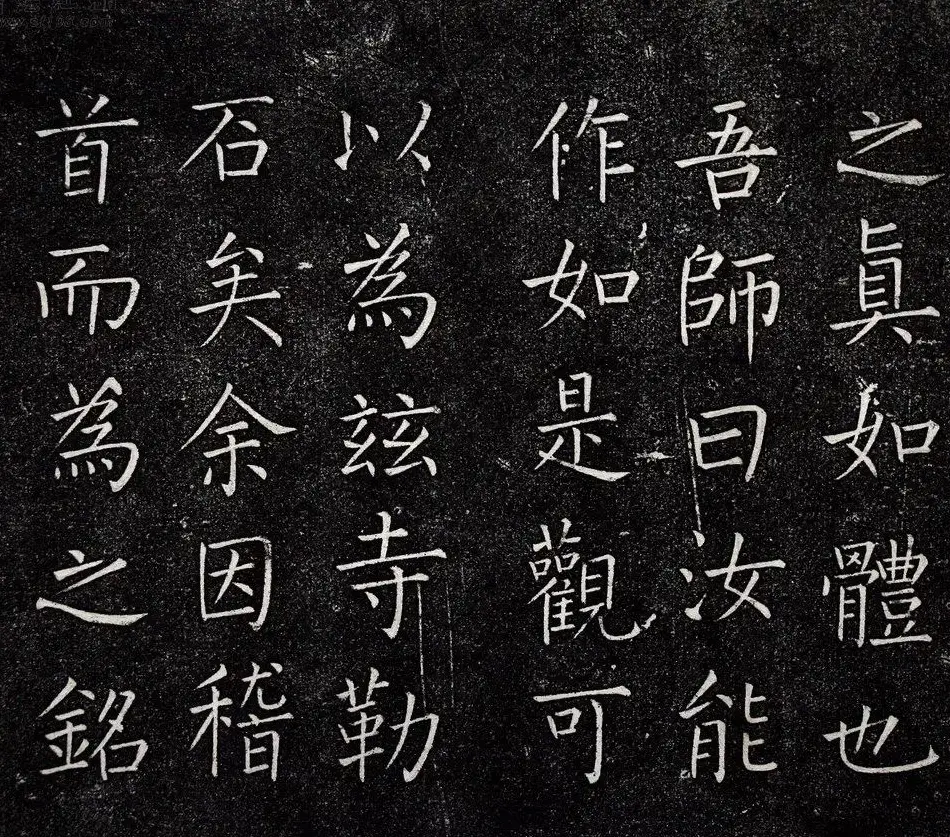 之真如體也
吾師曰汝能
作如是觀可
以為茲寺勒
石矣余因稽
首而為之銘